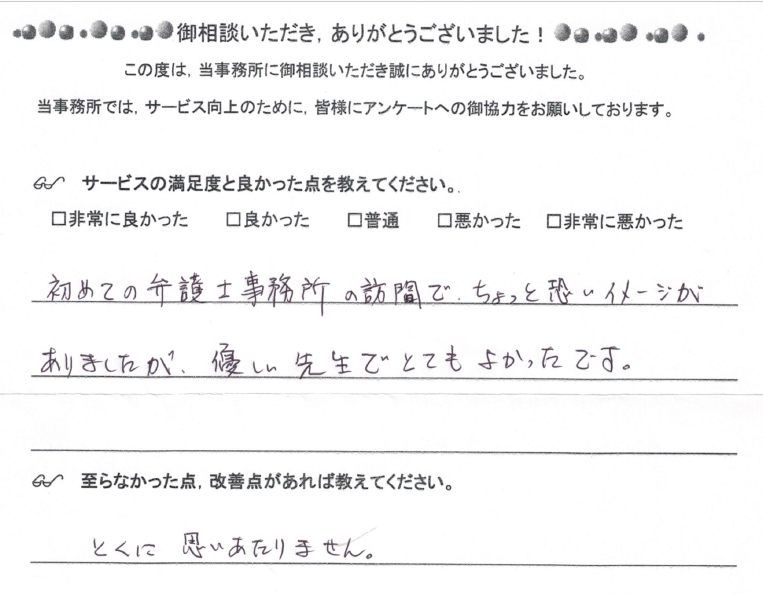 御相談いただき，ありがとうございました！
この度は，当事務所に御相談いただき誠にありがとうございました。
当事務所では，サービス向上のために，皆様にアンケートへの御協力をお願いしております。
サービスの満足度と良かった点を教えてください。.
□非常に良かった □良かった □普通 □悪かった □非常に悪かった
初めての弁護士事務所の訪問で、ちょっと恐いイメージが
ありましたが、優しい先生でとてもよかったです。
至らなかった点，改善点があれば教えてください。
とくに 思いあたりません。